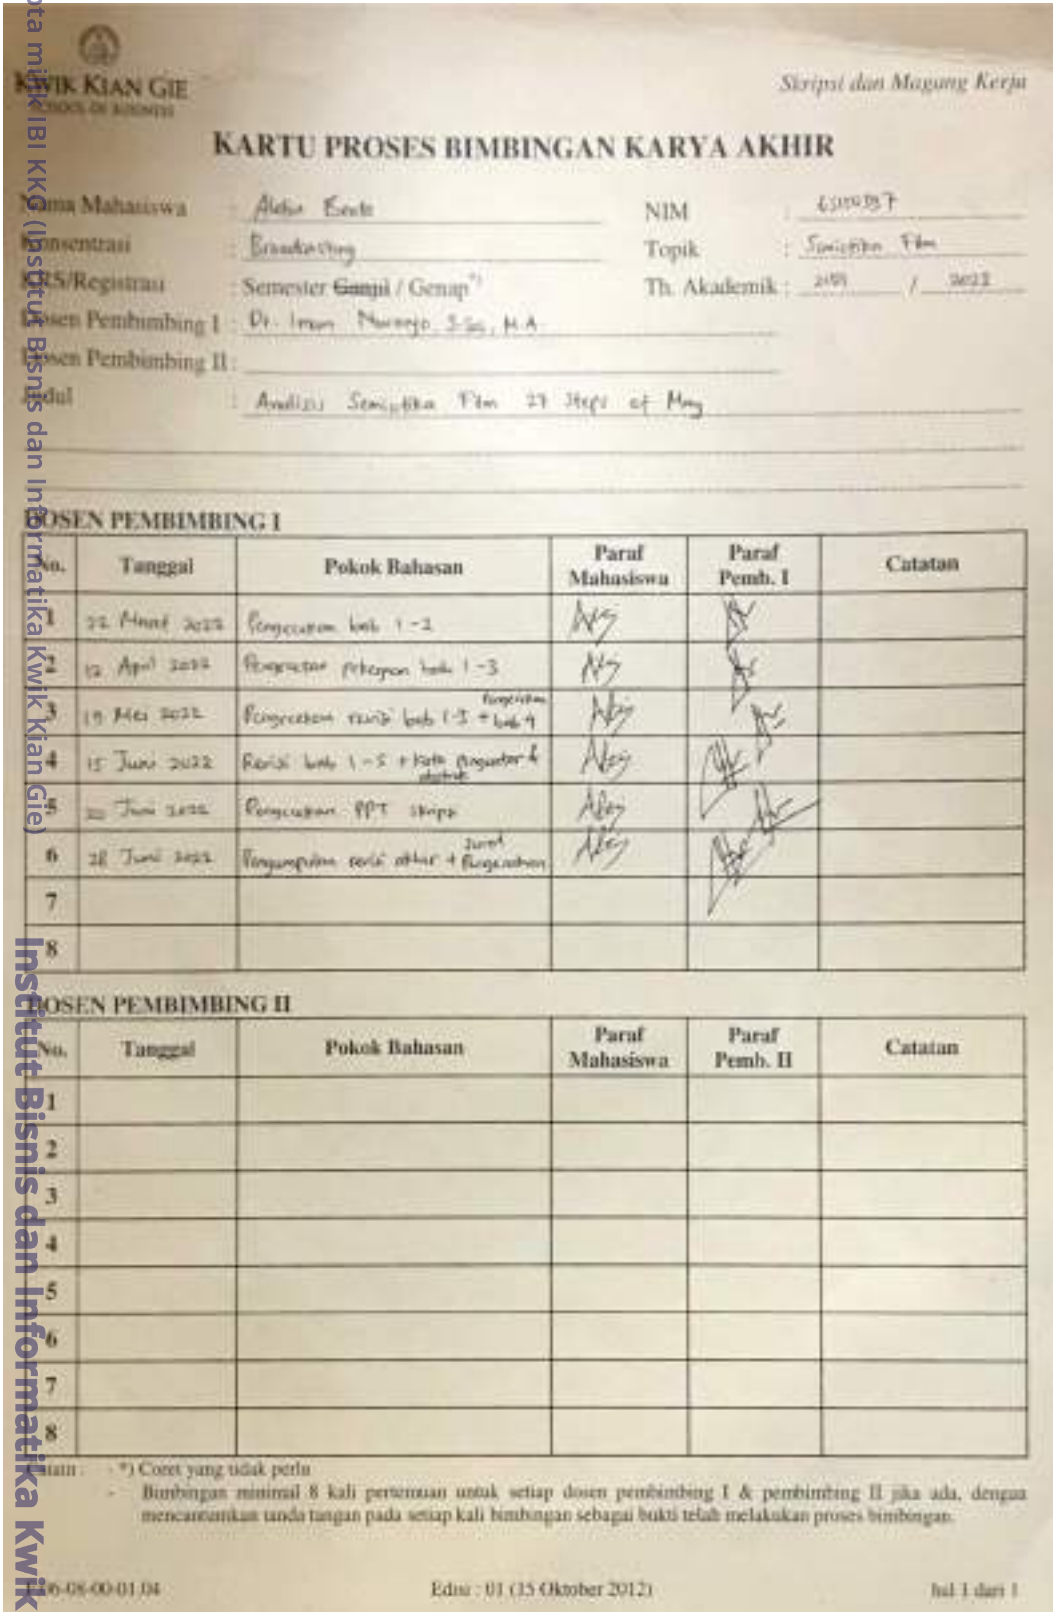 KWIK KIAN GIE
SCHOOL OF BUSINESS
Skripsi dan Magang Kerja
KARTU PROSES BIMBINGAN KARYA AKHIR
Nama Mahasiswa :
NIM :
Konsentrasi : Broadcasting
Topik : Semiotika Film
KRS/Registrasi : Semester Ganjil / Genap*)
Th. Akademik : / 2022
Dosen Pembimbing I : Dr. Imam
Dosen Pembimbing II :
Judul : Analisis Semiotika Film 27 Steps of May
DOSEN PEMBIMBING I
No. Tanggal Pokok Bahasan Paraf Mahasiswa Paraf Pemb. I Catatan
1 22 Maret 2022 Pengecekan bab 1-2
2 12 April 2022 bab 1-3
3 19 Mei 2022 Pengecekan revisi bab 1-3 + Pengecekan bab 4
4 15 Juni 2022 Revisi bab 1-5 + Kata Pengantar & abstrak
5 Juni 2022 Pengecekan PPT skripsi
6 28 Juni 2022 Pengumpulan revisi akhir + Surat
7
8
DOSEN PEMBIMBING II
No. Tanggal Pokok Bahasan Paraf Mahasiswa Paraf Pemb. II Catatan
1
2
3
4
5
6
7
8
*) Coret yang tidak perlu
- Bimbingan minimal 8 kali pertemuan untuk setiap dosen pembimbing I & pembimbing II jika ada, dengan
mencantumkan tanda tangan pada setiap kali bimbingan sebagai bukti telah melakukan proses bimbingan.
6-08-00-01.04
Edisi : 01 (15 Oktober 2012)
hal 1 dari 1
milik IBI KKG (Institut Bisnis dan Informatika Kwik Kian Gie)
Institut Bisnis dan Informatika Kwik